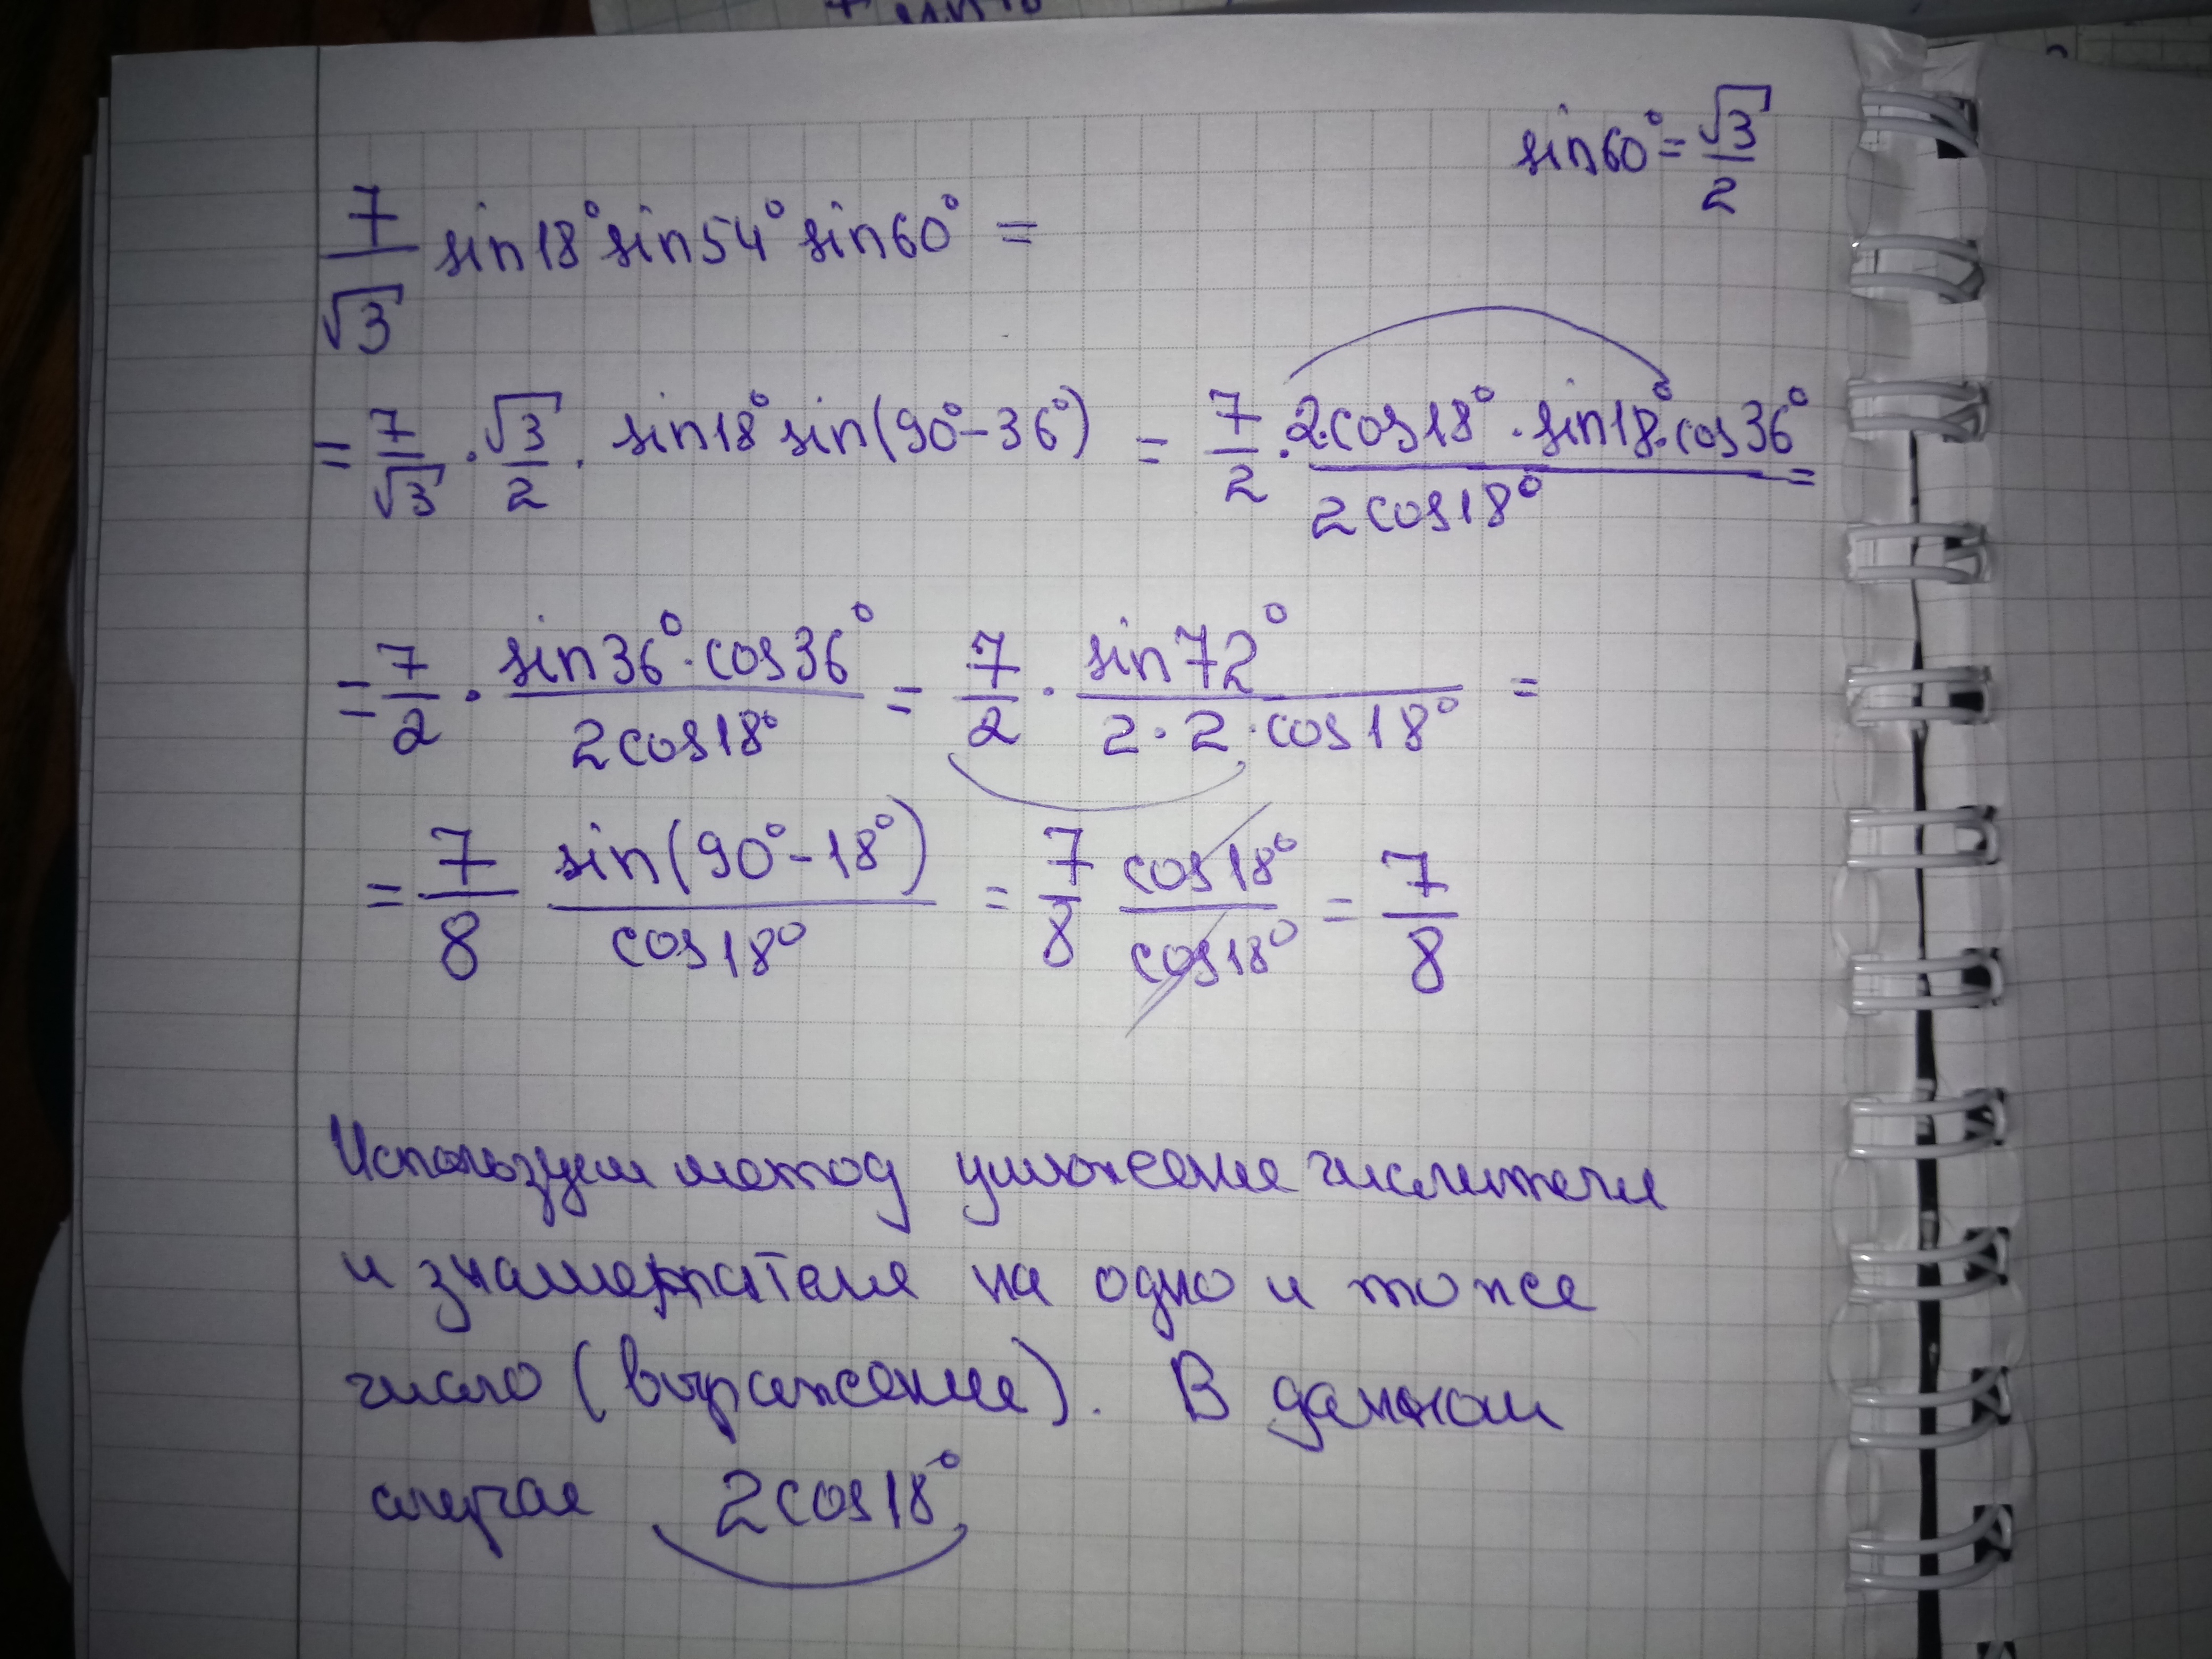 sin60° = √3/2
7/√3 sin18° sin54° sin60° =
= 7/√3 · √3/2 · sin18° sin(90°-36°) = 7/2 · 2cos18° · sin18° · cos36° / 2cos18° =
= 7/2 · sin36° · cos36° / 2cos18° = 7/2 · sin72° / 2·2·cos18° =
= 7/8 sin(90°-18°) / cos18° = 7/8 cos18° / cos18° = 7/8
Используем метод умножение числителя
и знаменателя на одно и тоже
число (выражение). В данном
случае 2cos18°